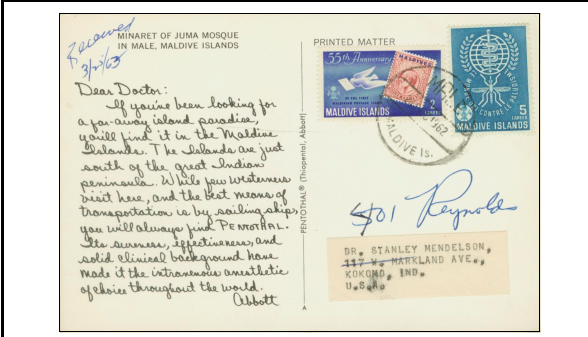 Received
3/25/63
MINARET OF JUMA MOSQUE
IN MALE, MALDIVE ISLANDS
Dear Doctor:
If you've been looking for
a far-away island paradise,
you'll find it in the Maldive
Islands. The Islands are just
south of the great Indian
peninsula. While few westerners
visit here, and the best means of
transportation is by sailing ship,
you will always find PENTOTHAL.
Its sureness, effectiveness, and
solid clinical background have
made it the intravenous anesthetic
of choice throughout the world.
Abbott
PENTOTHAL® (Thiopental, Abbott)
A
PRINTED MATTER
55th Anniversary
OF THE FIRST
MALDIVIAN POSTAGE STAMP
MALDIVES
2
LAREES
MALDIVE ISLANDS
CONTRE LE PALUDISME
5
LAREES
MALDIVE ISLANDS
1962
MALDIVE Is.
801 Reynolds
DR. STANLEY MENDELSON,
117 W. MARKLAND AVE.,
KOKOMO, IND.
U.S.A.